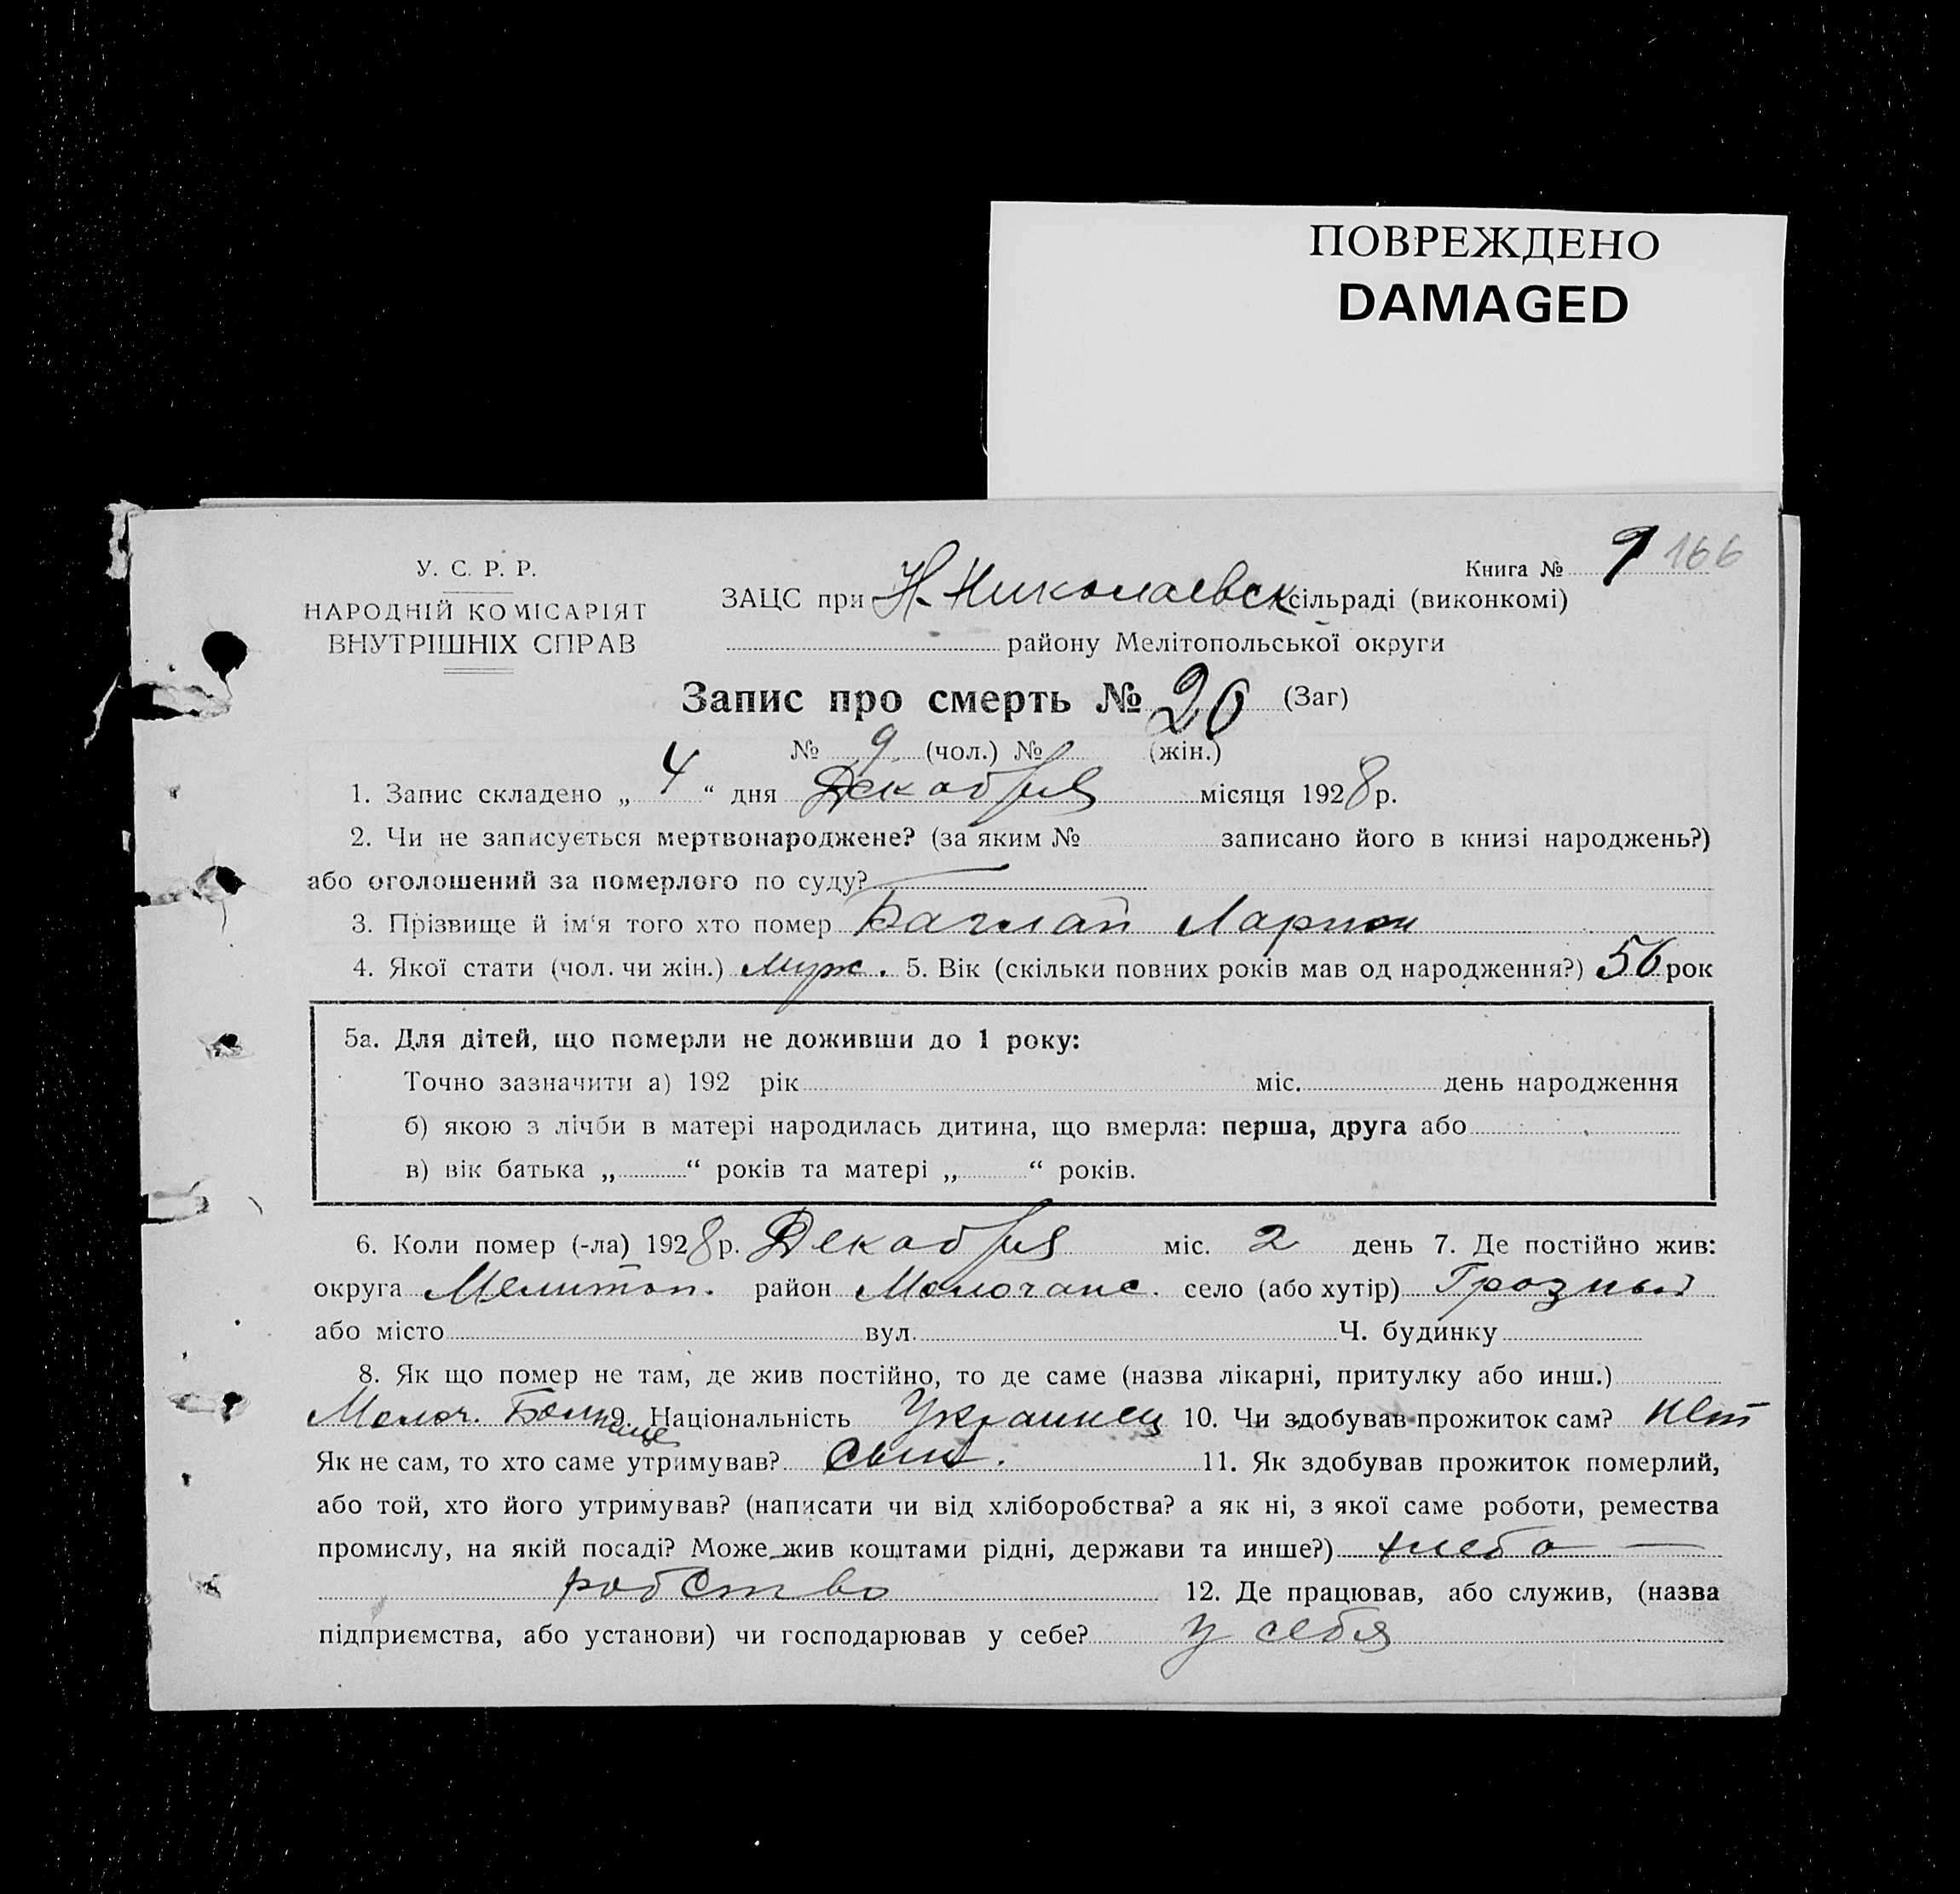 ПОВРЕЖДЕНО
DAMAGED
Книга № 9 166
У. С. Р. Р.
НАРОДНІЙ КОМІСАРІЯТ
ВНУТРІШНІХ СПРАВ
ЗАЦС при Н. Николаевск сільраді (виконкомі)
району Мелітопольської округи
Запис про смерть № 20 (Заг)
№ 9 (чол.) № (жін.)
1. Запис складено „ 4 “ дня Декабря місяця 1928 р.
2. Чи не записується мертвонароджене? (за яким № записано його в книзі народжень?)
або оголошений за померлого по суду?
3. Прізвище й ім'я того хто помер Баглай Ларион
4. Якої стати (чол. чи жін.) муж. 5. Вік (скільки повних років мав од народження?) 56 рок
5а. Для дітей, що померли не доживши до 1 року:
Точно зазначити а) 192 рік міс. день народження
б) якою з лічби в матері народилась дитина, що вмерла: перша, друга або
в) вік батька „ “ років та матері „ “ років.
6. Коли помер (-ла) 1928 р. Декабря міс. 2 день 7. Де постійно жив:
округа Мелитоп. район Молочанс. село (або хутір) Грозный
або місто вул. Ч. будинку
8. Як що помер не там, де жив постійно, то де саме (назва лікарні, притулку або инш.)
Молоч. Больнице 9. Національність Украинец 10. Чи здобував прожиток сам? нет
Як не сам, то хто саме утримував? сын. 11. Як здобував прожиток померлий,
або той, хто його утримував? (написати чи від хліборобства? а як ні, з якої саме роботи, ремества
промислу, на якій посаді? Може жив коштами рідні, держави та инше?) хлебо —
робство 12. Де працював, або служив, (назва
підприємства, або установи) чи господарював у себе? у себя